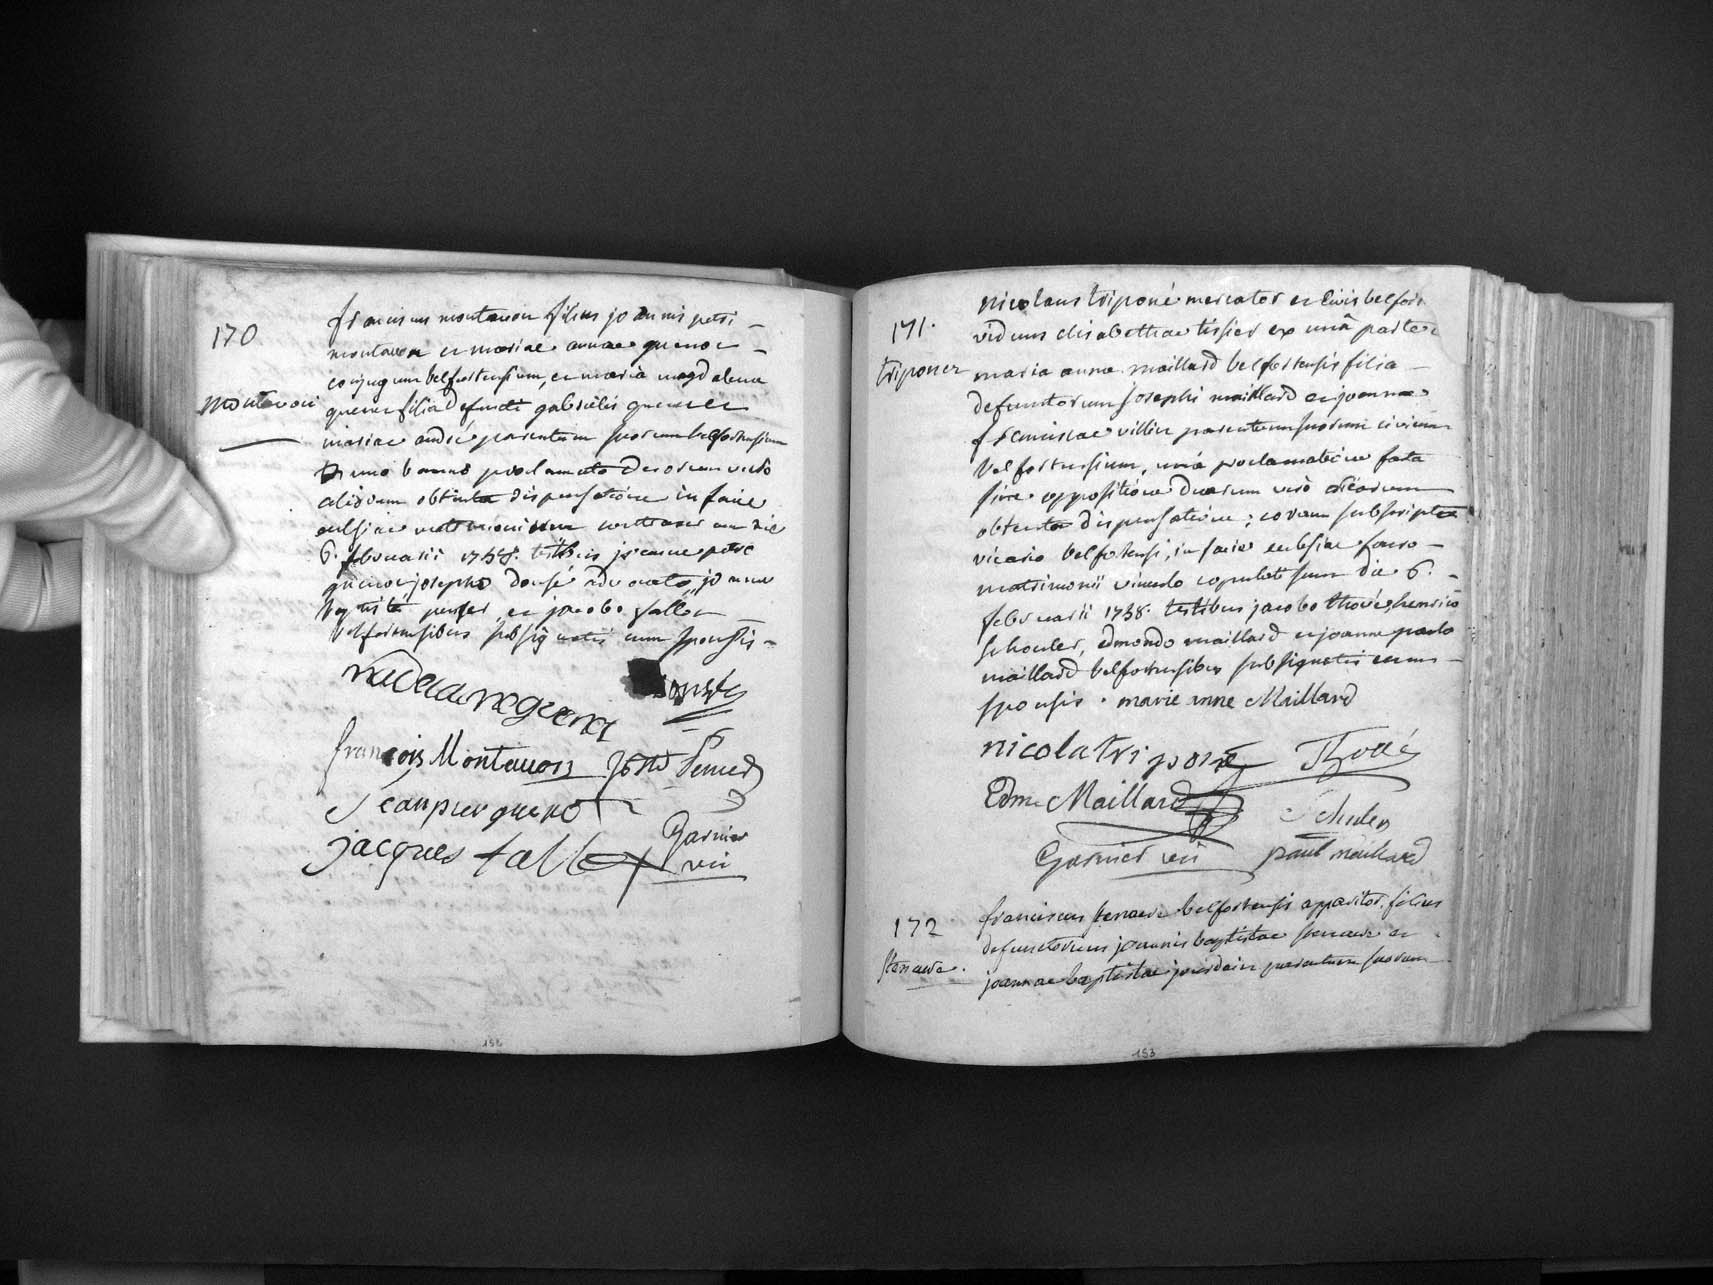 170
montavon
franciscus montavon filius joannis petri
montavon et mariae annae quenot
conjugum belfortensium, et maria magdalena
quenet filia defuncti gabrielis quenet et
mariae andré parentum suorum belfortensium
uno banno proclamato duorum vero
aliorum obtenta dispensatione in facie
ecclesiae matrimonium contraxerunt die
6. februarii 1738. testibus joanne petro
quenot, josepho donsé advocato, joanne
baptista et jacobo tallon
belfortensibus subsignatis cum sponsis
françois Montavon
Jean pier queno
Garnier
jacques
vic
156
171.
triponez
nicolaus triponé mercator et civis belfort
viduus elisabethae tissier ex una parte
maria anna maillard belfortensis filia
defunctorum josephi maillard et joannae
franciscae villin parentum suorum civium
belfortensium, una proclamatione facta
sine oppositione duarum vero aliarum
obtenta dispensatione; coram subscripto
vicario belfortensi, in facie ecclesiae sacro
matrimonii vinculo copulati sunt die 6.
februarii 1738. testibus jacobo thové, henrico
schouler, edmondo maillard et joanne paulo
maillard belfortensibus subsignatis cum
sponsis. marie anne Maillard
nicola triponé
Edm Maillard
Schuler
Garnier vic paul maillard
172
franciscus belfortensis apparitor filius
defunctorum joannis baptistae et
joannae baptistae jourdain parentum suorum
153